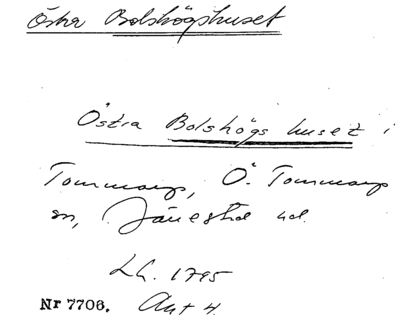 Östra Bolshögshuset
Östra Bolshögs huset i
Tommarp, Ö. Tommarp
sn, Järrestad hd.
Lh. 1795
Nr 7706. Akt 4.